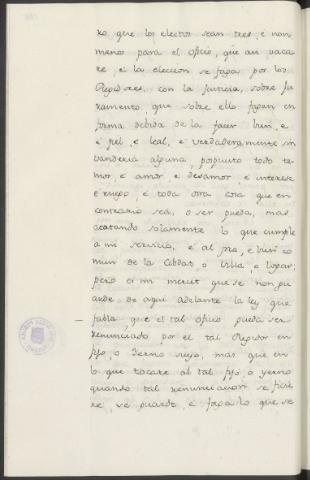 ro, que los electos sean tres, e non
menos para el oficio, que asi vaca
re, e la eleccion se faga por los
Regidores, con la Justicia, sobre ju
ramento, que sobre ello fagan en
forma debida de la facer bien, e
e fiel, e leal, e verdaderamente sin
vanderia alguna, pospuesto todo te
mor, e amor e desamor e interese
e ruego, e toda otra cosa que en
contrario sea, o ser pueda, mas
acatando solamente lo que cumple
a mi servicio, e al pro, e bien co
mun de la Cibdat, o Villa, e logar;
pero es mi mercet que se non gu
arde de aqui adelante la ley, que
fabla que el tal oficio pueda ser
renunciado por el tal Regidor en
fijo, o Yerno suyo, mas que en
lo que tocare al tal fijo o yerno
quando tal renunciacion se ficie
re, se guarde, e faga lo que se